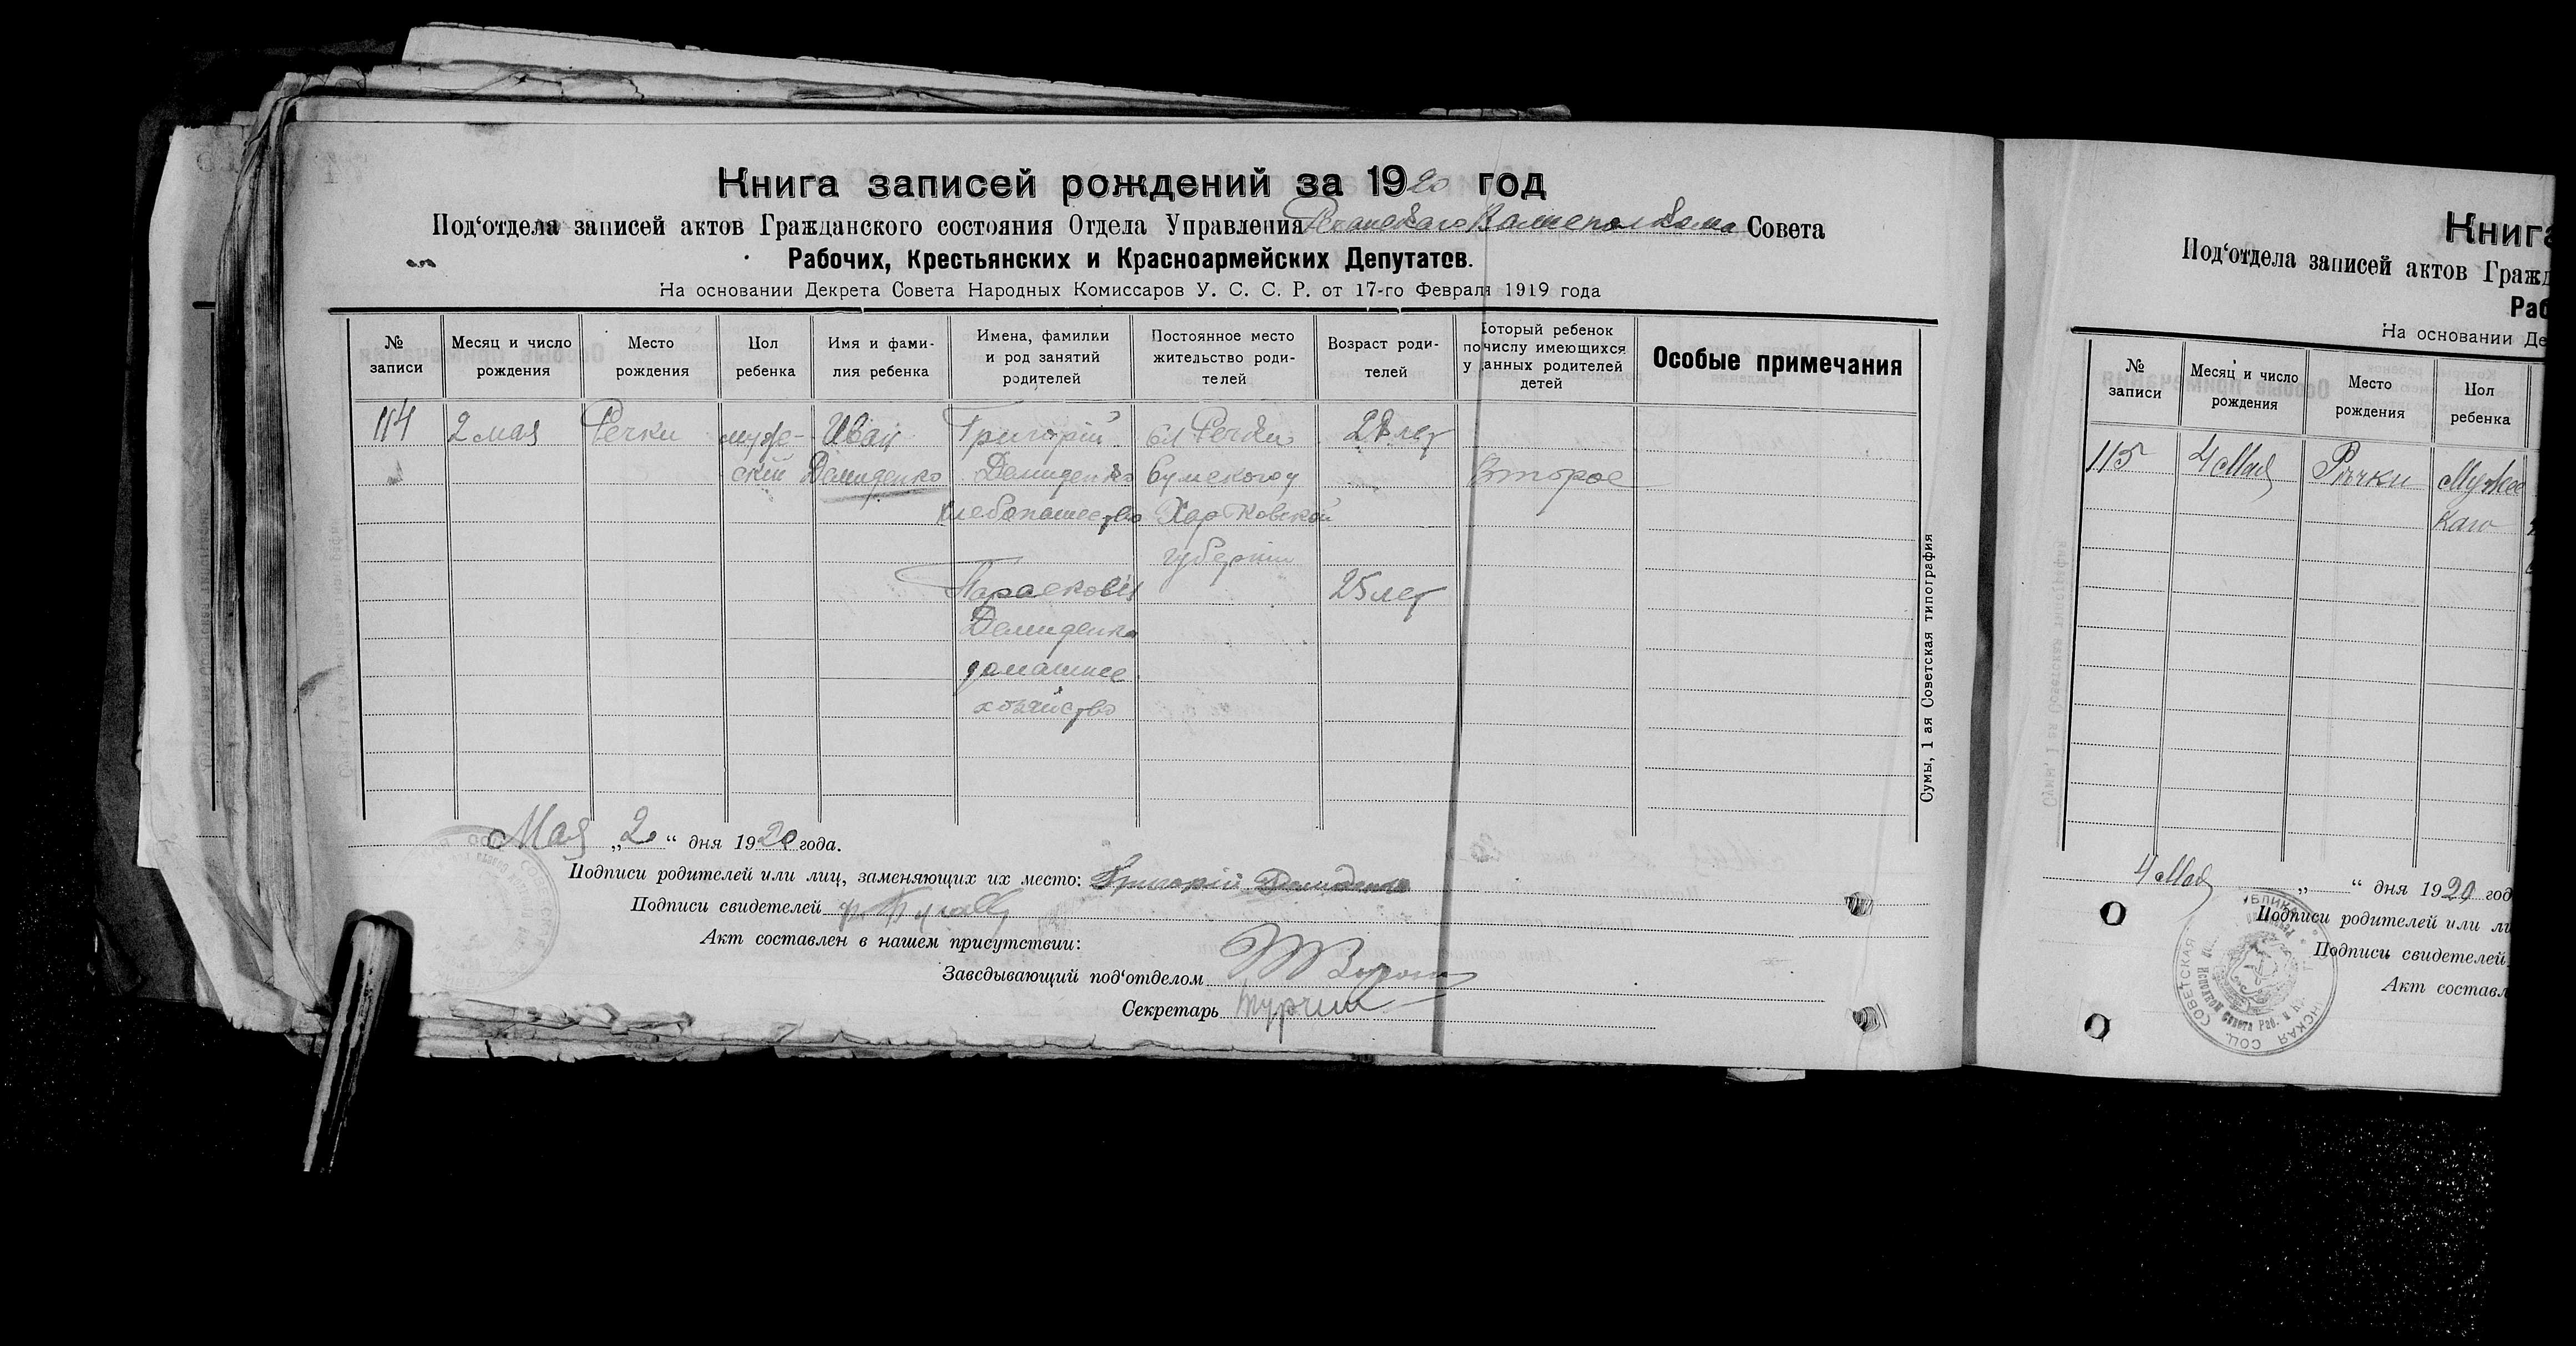 Книга записей рождений за 1920 год
Под‘отдела записей актов Гражданского состояния Отдела Управления Речанскаго Волисполкома Совета
Рабочих, Крестьянских и Красноармейских Депутатов.
На основании Декрета Совета Народных Комиссаров У. С. С. Р. от 17-го Февраля 1919 года
№ записи
Месяц и число рождения
Место рождения
Пол ребенка
Имя и фами-
лия ребенка
Имена, фамилии
и род занятий
родителей
Постоянное место
жительство роди-
телей
Возраст роди-
телей
который ребенок
по числу имеющихся
у данных родителей
детей
Особые примечания
114
2 мая
Речки
муже-
скій
Иван
Демиденко
Григорій
Демиденко
хлебопашество
сл Речки
Сумского у
Харковской
губерніи
28 лет
Второе
Парасковія
Демиденко
домашнее
хозяйство
25 лет
Мая „2“ дня 1920 года.
Подписи родителей или лиц, заменяющих их место: Григорій Демиденко
Подписи свидетелей
Акт составлен в нашем присутствии:
Заведывающий под‘отделом
Секретарь
Сумы, 1 ая Советская типография
Книга
Под‘отдела записей актов Гражд
Раб
На основании Де
№ записи
Месяц и число рождения
Место рождения
Пол ребенка
115
4 Мая
Речки
Мужес
каго
4 Мая „ “ дня 1920 год
Подписи родителей или ли
Подписи свидетелей
Акт составл